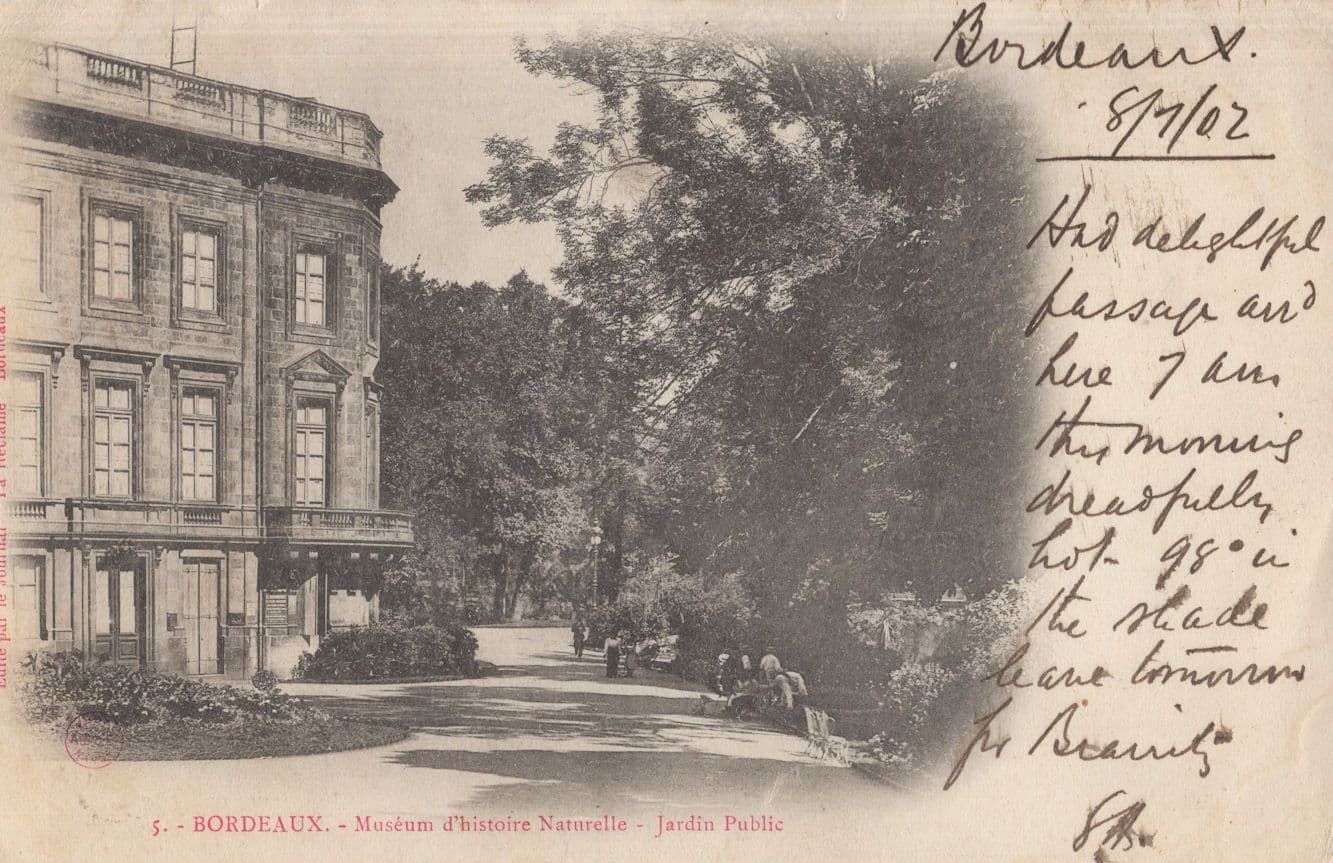 Bordeaux.
8/7/02
Had delightful
passage and
here 7 am
this morning
dreadfully
hot 98° in
the shade
leave tomorrow
for Biarritz
Edité par le Journal "La Réclame" Bordeaux
5. - BORDEAUX. - Muséum d'histoire Naturelle - Jardin Public